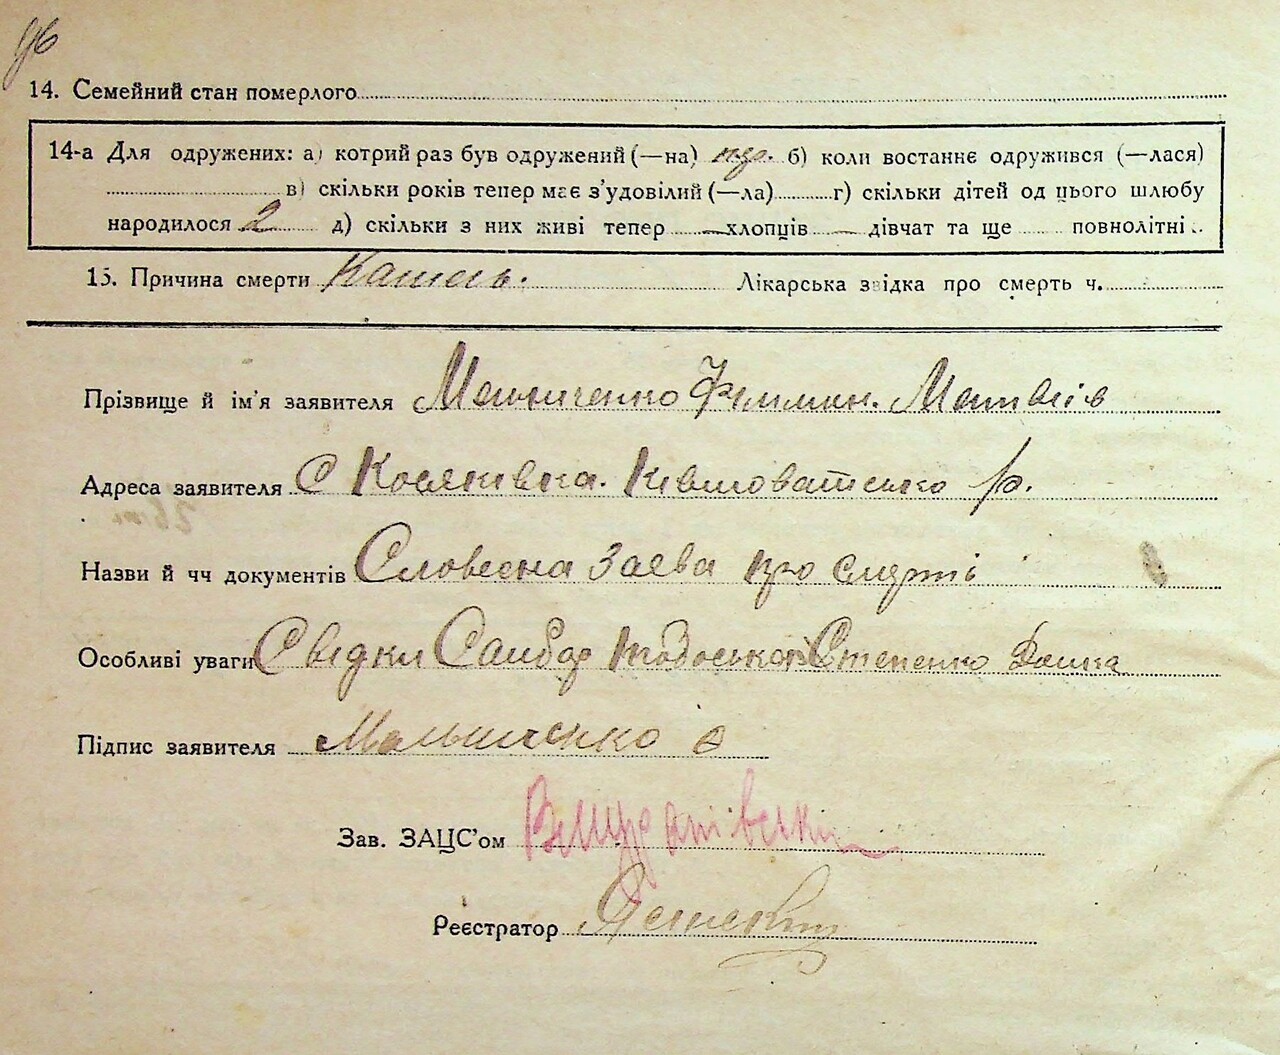 96
14. Семейний стан померлого
14-а Для одружених: а) котрий раз був одружений (—на) пер. б) коли востаннє одружився (—лася)
в) скільки років тепер має з'удовілий (—ла) г) скільки дітей од цього шлюбу
народилося 2 д) скільки з них живі тепер — хлопців — дівчат та ще повнолітні
15. Причина смерти Кашель. Лікарська звідка про смерть ч.
Прізвище й ім'я заявителя Матвіїв
Адреса заявителя С Косяківка. р.
Назви й чч документів Словесна Заева про смерті
Особливі уваги Свідки Самбор Степенко
Підпис заявителя
Зав. ЗАЦС'ом
Реєстратор